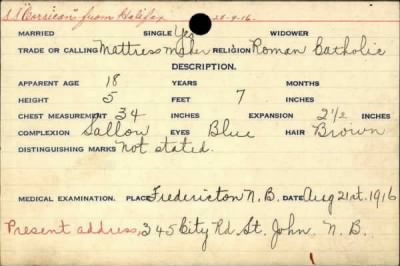 S.S "Corsican" from Halifax 28-9-16.
MARRIED SINGLE Yes WIDOWER
TRADE OR CALLING Mattress maker RELIGION Roman Catholic
DESCRIPTION.
APPARENT AGE 18 YEARS MONTHS
HEIGHT 5 FEET 7 INCHES
CHEST MEASUREMENT 34 INCHES EXPANSION 2 1/2 INCHES
COMPLEXION Sallow EYES Blue HAIR Brown
DISTINGUISHING MARKS Not stated.
MEDICAL EXAMINATION. PLACE Fredericton N.B. DATE Aug 21st. 1916
Present address, 345 City Rd. St. John, N. B.